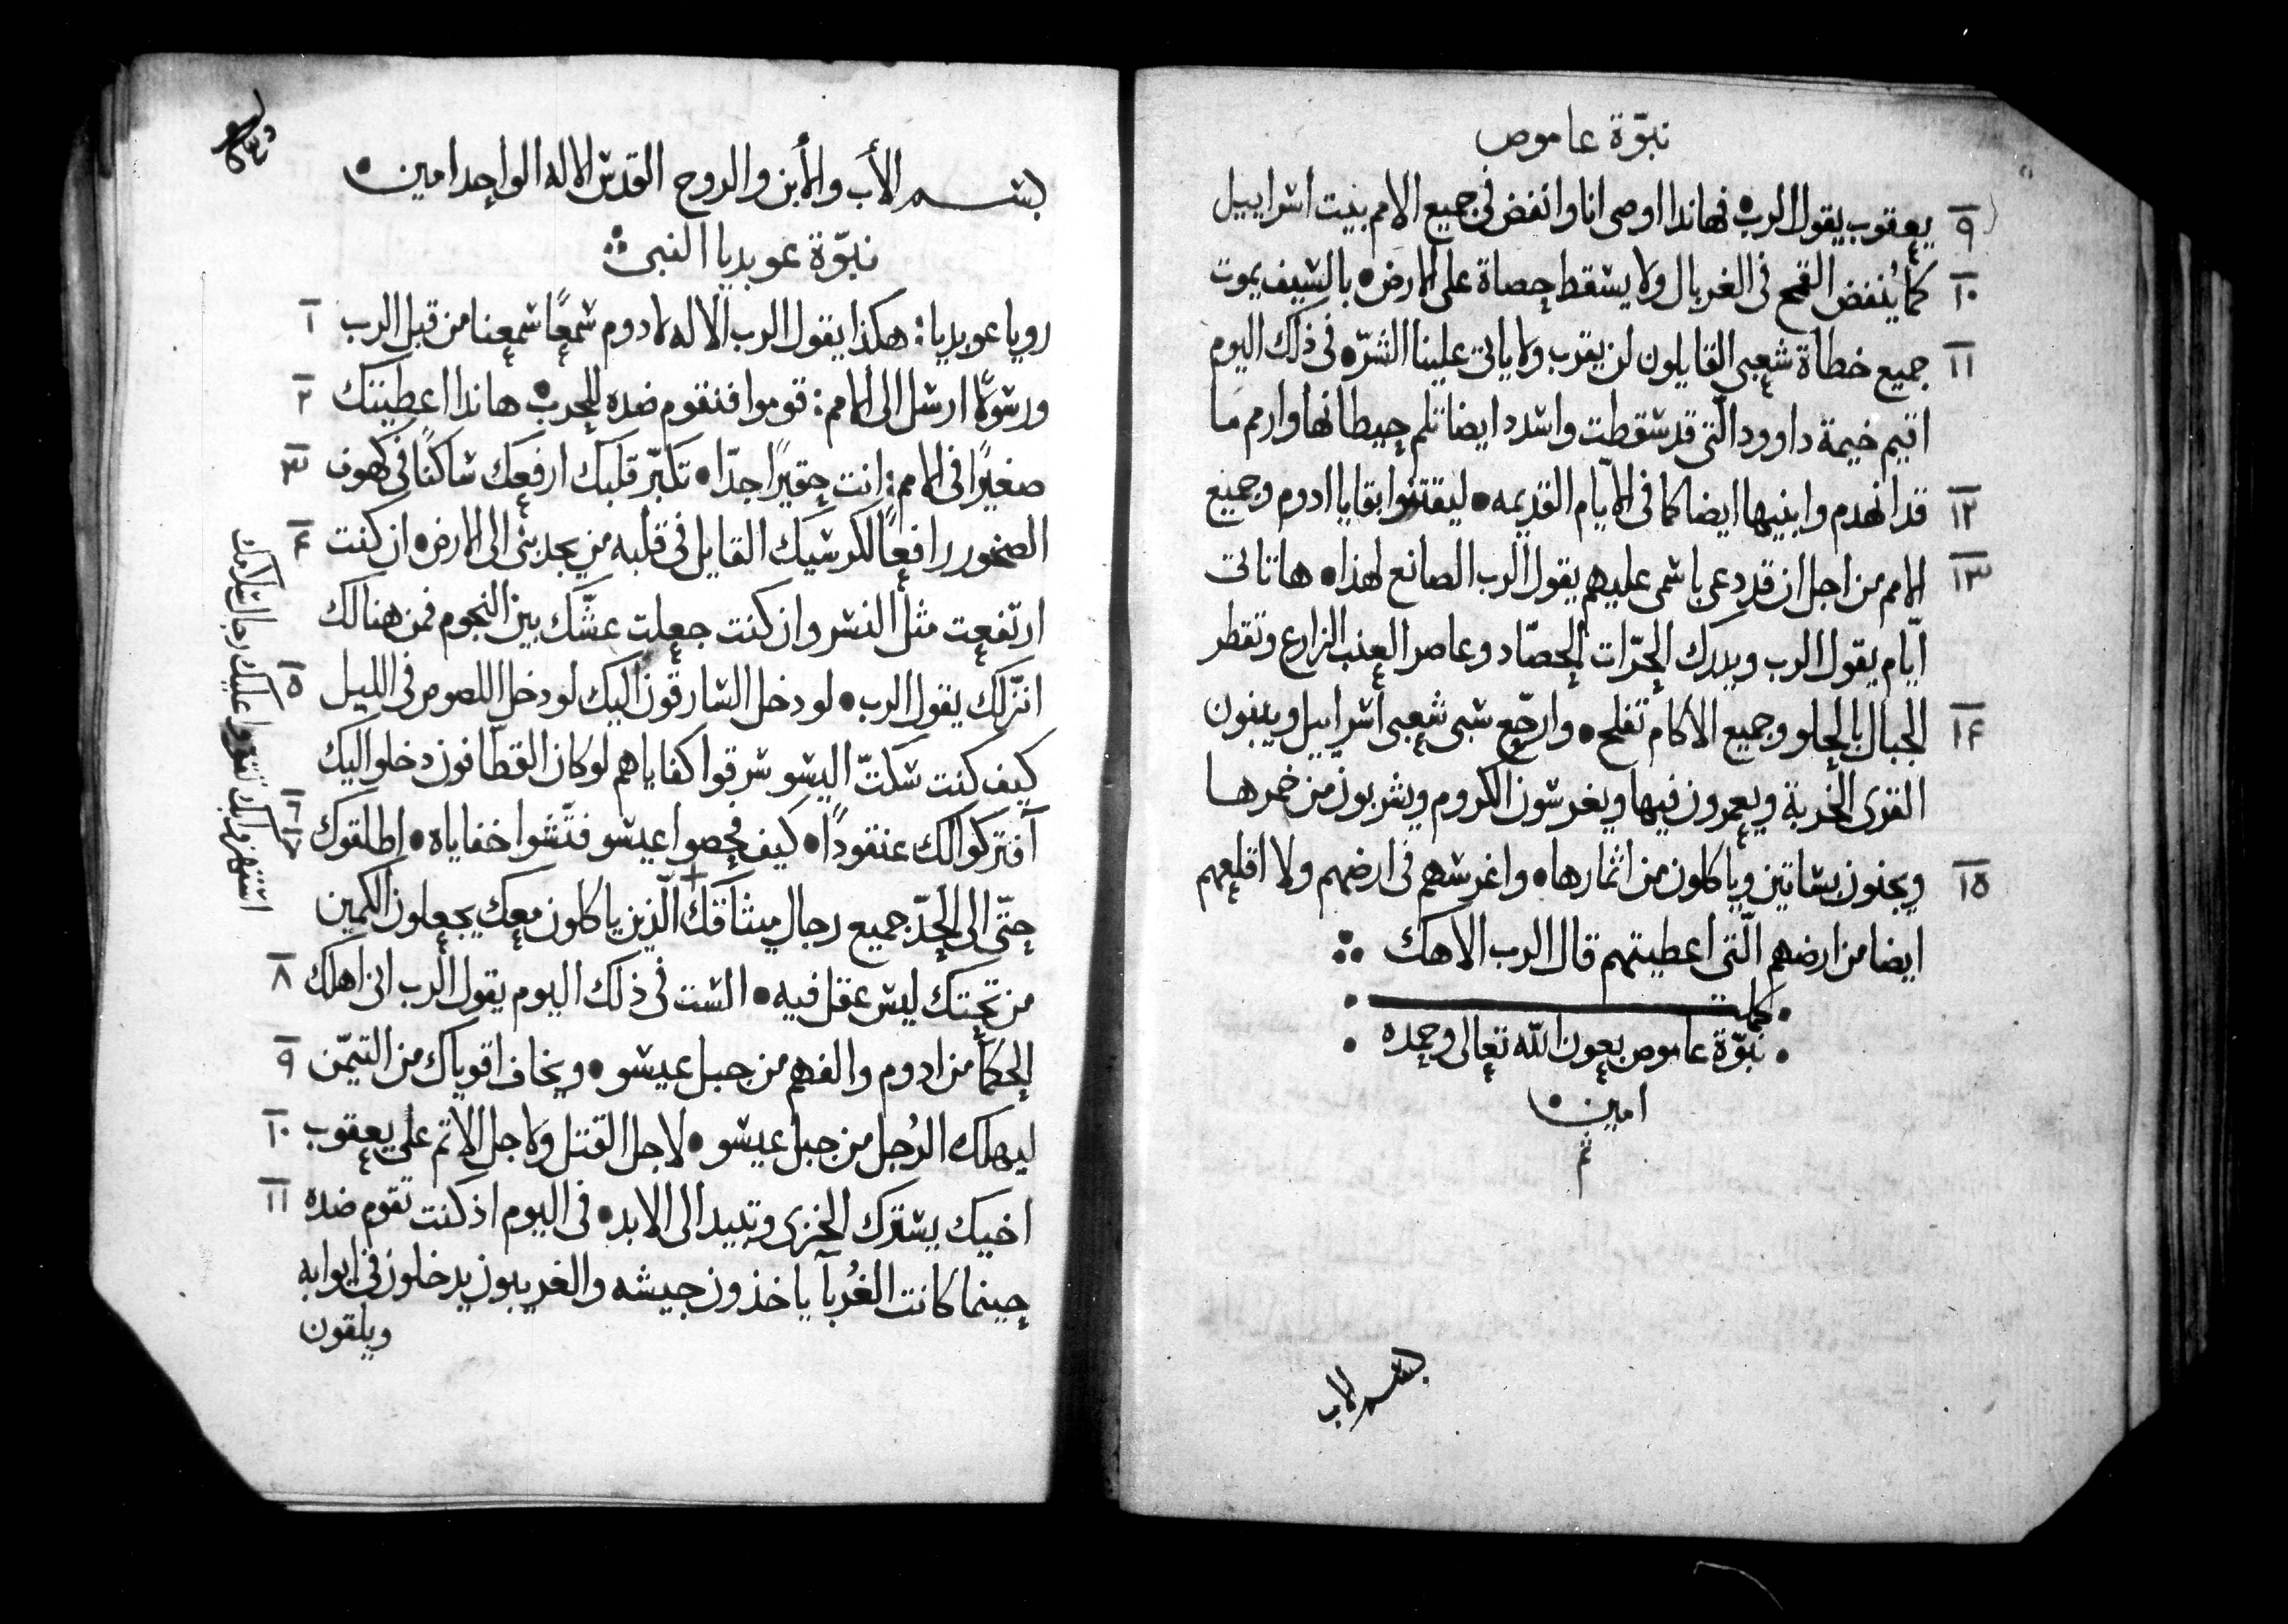 نبوّة عاموص
٩ يعقوب يقول الرب • فهانذا اوصى انا وانفض فى جميع الامم بنيت اسراييل
١٠ كما يُنفض القمح فى الغربال ولا يسقط حصاة على الارض • بالسيف يموت
١١ جميع خطاة شعبى القايلون لن يقرب ولا ياتى علينا الشرّ • فى ذلك اليوم
اقيم خيمة داوود الّتى قد سقطت واسدد ايضا ثلم حيطانها وارمم ما
١٢ قد انهدم وابنيها ايضا كما فى الايّام القديمه • ليقتنوا بقايا ادوم وجميع
١٣ الامم من اجل ان قد دعى باسمى عليهم يقول الرب الصانع لهذا • ها تاتى
ايّام يقول الرب ويدرك الحرّاث الحصّاد وعاصر العنب الزارع وتقطر
١٤ الجبال بالحلو وجميع الاكام تفلح • وارجّع سبى شعبى اسراييل ويبنون
القرى الخربة ويعمرون فيها ويغرسون الكروم ويشربون من خمرها
١٥ ويجنون بساتين وياكلون من اثمارها • واغرسهم فى ارضهم ولا اقلعهم
ايضا من ارضهم الّتى اعطيتهم قال الرب الاهك
كملت
نبوّة عاموص بعون الله تعالى وحمده
امين •
تم
بسم الاب
بسم الأب والأبن والروح القدس الاله الواحد امين •
نبوّة عوبديا النبى
١ رويا عوبديا : هكذا يقول الرب الاله لادوم سمعًا سمعنا من قبل الرب
٢ ورسولًا ارسل الى الامم : قوموا فنقوم ضده للحرب • هانذا اعطيتك
٣ صغيرًا فى الامم : انت حقيرًا جدّا • تكبّر قلبك ارفعك ساكنًا فى كهوف
٤ الصخور رافعًا لكرسيك القايل فى قلبه من يجدبنى الى الارض • ان كنت
ارتفعت مثل النسر وان كنت جعلت عشّك بين النجوم فمن هنالك
٥ انزّلك يقول الرب • لو دخل السارقون اليك لو دخل اللصوص فى الليل
كيف كنت سكتّ اليسو سرقوا كفاياهم لو كان القطّافون دخلو اليك
٦ ٧ آفتركوا لك عنقودًا • كيف فحصوا عيسو فتّشوا خفاياه • اطلقوك
حتّى الى الحدّ جميع رجال ميثاقك الّذين ياكلون معك يجعلون الكمين
٨ من تحتك ليس عقل فيه • الست فى ذلك اليوم يقول الرب انى اهلك
٩ الحكمآ من ادوم والفهم من جبل عيسو • ويخاف اقوياك من التيمّن
١٠ ليهلك الرُجل من جبل عيسو • لاجل القتل ولاجل الاثم على يعقوب
١١ اخيك يسترك الخزى وتبيد الى الابد • فى اليوم اذ كنت تقوم ضده
حينما كانت الغُربآ ياخذون جيشه والغريبون يدخلون فى ابوابه
ويلقون
استهزوا بك تقووا عليك رجال سلامتك